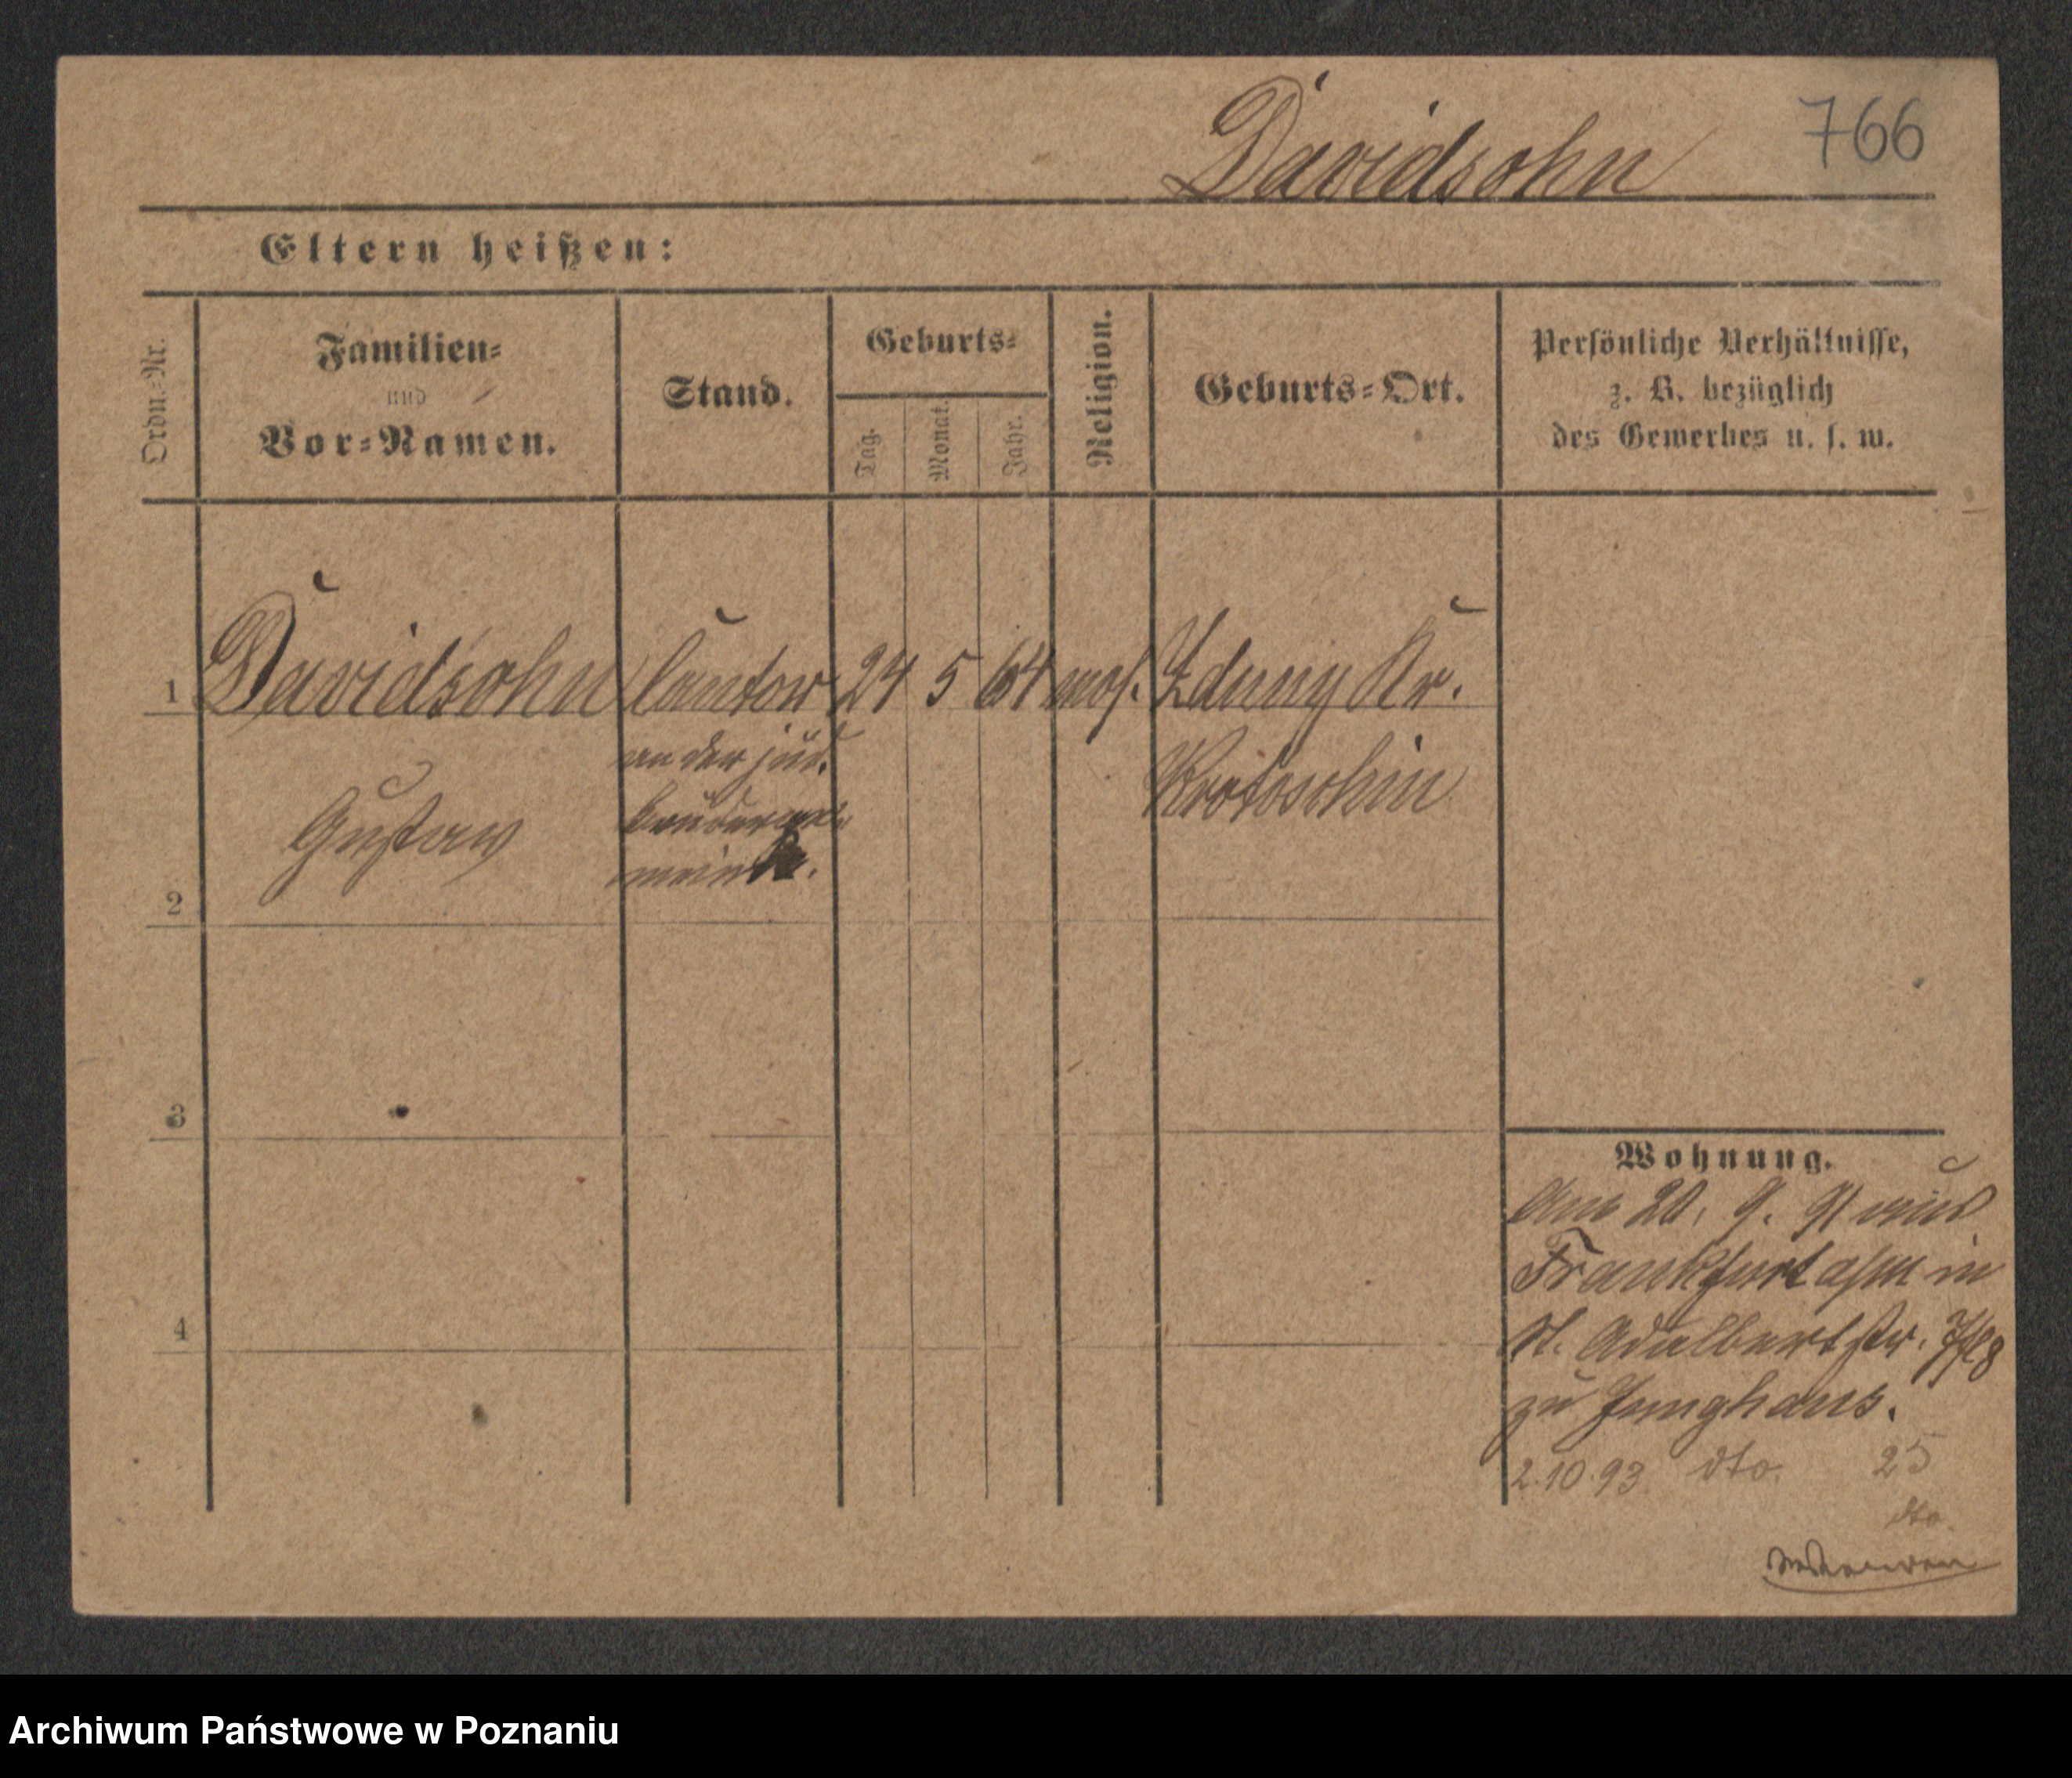 Davidsohn 766
Eltern heißen:
Ordn.=Nr.
Familien=
und
Vor=Namen.
Stand.
Geburts=
Tag.
Monat.
Jahr.
Religion.
Geburts=Ort.
Persönliche Verhältnisse,
z. B. bezüglich
des Gewerbes u. s. w.
1 Davidsohn Cantor 24 5 64 mos. Zduny Kr.
an der jüd. Krotoschin
Gustav Brüderge-
meinde.
2
3
4
Wohnung.
Am 20. 9. 91 aus
Frankfurt a/m in
St. Adalbertstr.
zu Junghans.
2.10.93 dto. 25
dto.